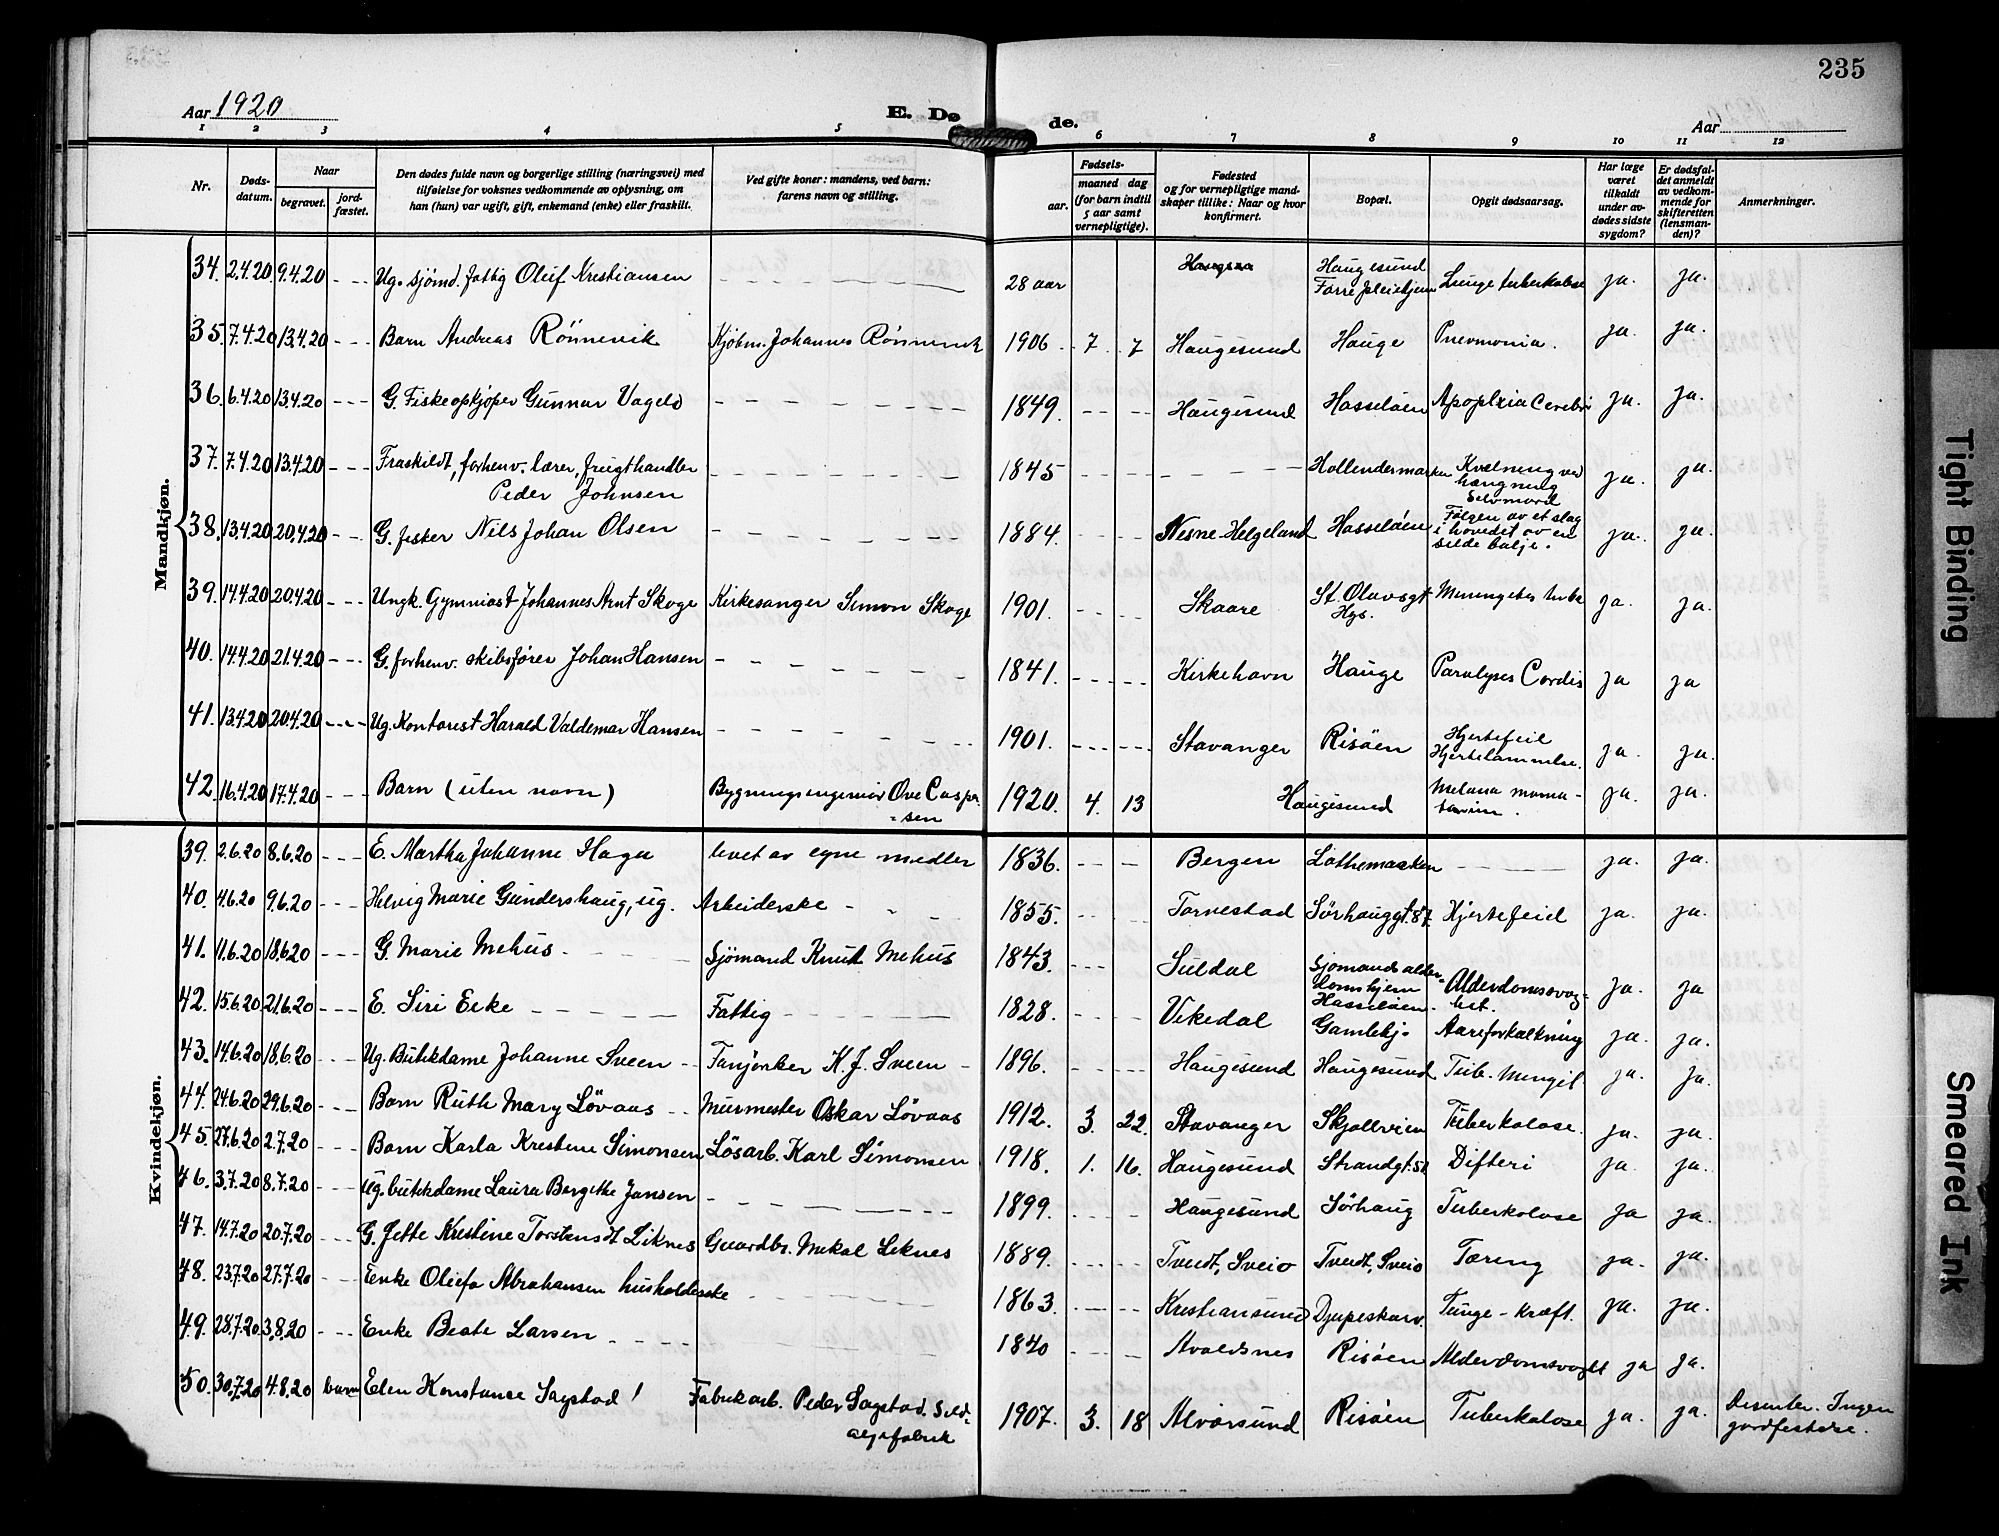 235
Aar 1920
E. Dø
de.
Aar
1 2 3 4 5 6 7 8 9 10 11 12
Nr.
Døds-
datum.
Naar
begravet.
jord-
fæstet.
Den dødes fulde navn og borgerlige stilling (næringsvei) med
tilføielse for voksnes vedkommende av oplysning, om
han (hun) var ugift, gift, enkemand (enke) eller fraskilt.
Ved gifte koner: mandens, ved barn:
farens navn og stilling.
Fødsels-
aar.
maaned dag
(for barn indtil
5 aar samt
vernepligtige).
Fødested
og for vernepligtige mand-
skaper tillike: Naar og hvor
konfirmert.
Bopæl.
Opgit dødsaarsag.
Har læge
været
tilkaldt
under av-
dødes sidste
sygdom?
Er dødsfal-
det anmeldt
av vedkom-
mende for
skifteretten
(lensman-
den)?
Anmerkninger.
Mandkjøn.
34. 2.4.20 9.4.20 - - - Ug. sjømd. fattig Oluf Kristiansen - - - 28 aar Haugesund Haugesund Lunge tuberkolose ja. ja.
Førre pleiehjem
35. 7.4.20 13.4.20 - - - Barn Andreas Rönnevik Kjöbm. Johannes Rønnevik 1906 7 7 Haugesund Hauge Pnevmonia. ja ja.
36. 6.4.20 13.4.20 - - - G. Fiskeopkjøper Gunnar Vågelö - - - 1849. Haugesund Hasseløen Apoplexia Cerebri ja. ja.
37. 7.4.20 13.4.20 - - - Fraskildt, forhenv. lærer, frugthandler
Peder Johnsen - - - 1845 - - - Hollendermarken Kvælning ved
hængning
Selvmord ja. ja.
38. 13.4.20 20.4.20 - - - G. fisker Nils Johan Olsen - - - 1884. Nesne-Helgeland Hasselöen Følgen av et slag
i hovedet av en
silde balje. ja. ja.
39. 14.4.20 20.4.20 - - - Ungk. Gymniast Johannes Arnt Skoge Kirkesanger Simon Skoge 1901. Skaare St. Olavsgt
Hgs. ja. ja.
40. 14.4.20 21.4.20 - - - G. forhenv. skibsfører Johan Hansen - - - 1841. Kirkehavn Hauge Paralyses Cordis ja ja
41. 13.4.20 20.4.20 - - - Ug. Kontorist Harald Valdemar Hansen - - - 1901. Stavanger Risöen Hjertefeil
Hjertelammelse. ja. ja.
42. 16.4.20 17.4.20 - - - Barn (uten navn) Bygningsingeniör Ove Casper-
sen 1920. 4. 13 Haugesund Melana ja. ja.
Kvindekjøn.
39. 2.6.20 8.6.20 - - - E. Martha Johanne Haga levet av egne midler 1836. Bergen Lothemarken - - - ja. ja.
40. 4.6.20 9.6.20 - - - Helvig Marie Gundershaug, ug. Arbeiderske - - - 1855. Torvestad Sörhauggt. 87. Hjertefeil ja. ja.
41. 11.6.20 18.6.20 - - - G. Marie Mehus - - - Sjömand Knut Mehus 1843. Suldal Sjömands alder-
domshjem
Hasselöen. Alderdomssvag-
het. ja. ja
42. 15.6.20 21.6.20 - - - E. Siri Eike - - - Fattig - - - 1828. Vikedal Gamlehj. Aareforkalkning ja. ja.
43. 14.6.20 18.6.20 - - - Ug. Butikdame Johanne Sveen - - K. J. Sveen - 1896. Haugesund Haugesund Tub. Mengit. ja. ja.
44. 24.6.20 29.6.20 - - - Barn Ruth Mary Lövaas - - Murmester Oskar Lövaas 1912. 3. 22. Stavanger Skjoldveien Tuberkolose. ja. ja.
45. 27.6.20 2.7.20 - - - Barn Karla Kristine Simonsen Lösarb. Karl Simonsen 1918. 1. 16. Haugesund Strandgt. 51 Difteri ja. ja.
46. 3.7.20 8.7.20 - - - Ug. butikdame Laura Bergithe Jansen - - - 1899. Haugesund Sörhaug Tuberkolose ja ja.
47. 14.7.20 20.7.20 - - - G. Jette Kristine Torstensdt Liknes Gaardbr. Mikal Liknes 1889. Tveidt, Sveio Tveidt, Sveio Tæring ja. ja.
48. 23.7.20 27.7.20 - - - Enke Olufa Abrahansen husholderske - - - 1863. Kristiansund Djupeskarv. Tunge-kræft. ja. ja.
49. 28.7.20 3.8.20 - - - Enke Beate Larsen - - - 1840 Avaldsnes Risöen Alderdomsvaght ja ja.
50. 30.7.20 4.8.20 barn Elen Konstanse Sagstad ! Fabrikarb. Peder Sagstad. Sild-
oljefabrik 1907. 3. 18 Alvorsund Risöen Tuberkolose ja. ja. Disenter. Ingen
jordfestelse.
Tight Binding
Smeared Ink